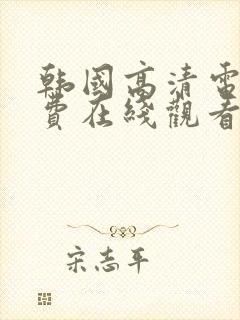 韩國高清電
費在綫觀看
宋志平